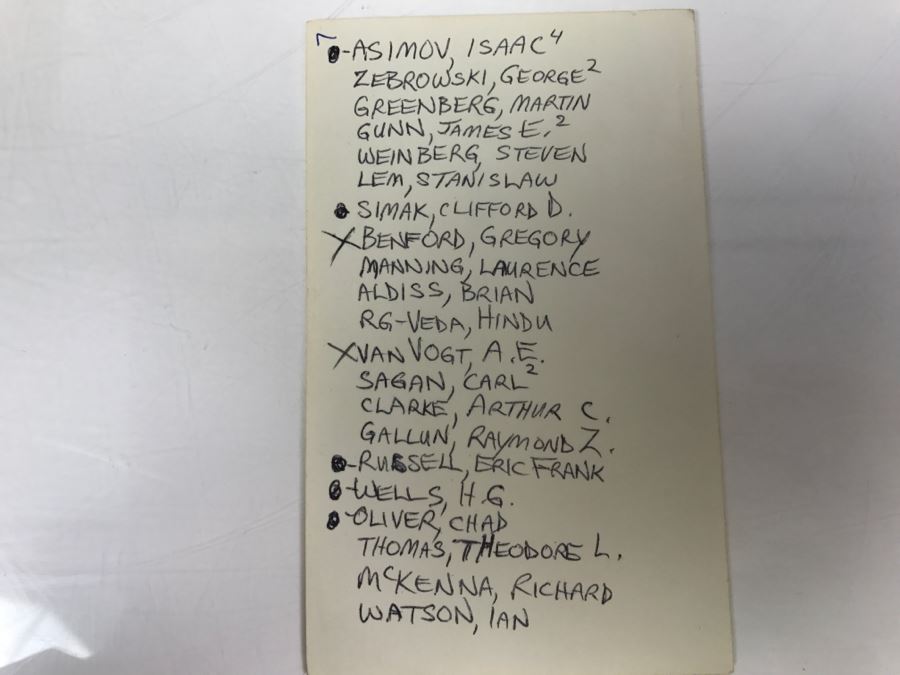 •-ASIMOV, ISAAC⁴
ZEBROWSKI, GEORGE²
GREENBERG, MARTIN
GUNN, JAMES E.²
WEINBERG, STEVEN
LEM, STANISLAW
• SIMAK, CLIFFORD D.
X BENFORD, GREGORY
MANNING, LAURENCE
ALDISS, BRIAN
RG-VEDA, HINDU
X VAN VOGT, A.E.
SAGAN, CARL²
CLARKE, ARTHUR C.
GALLUN, RAYMOND Z.
•-RUSSELL, ERIC FRANK
•-WELLS, H.G.
•-OLIVER, CHAD
THOMAS, THEODORE L.
McKENNA, RICHARD
WATSON, IAN